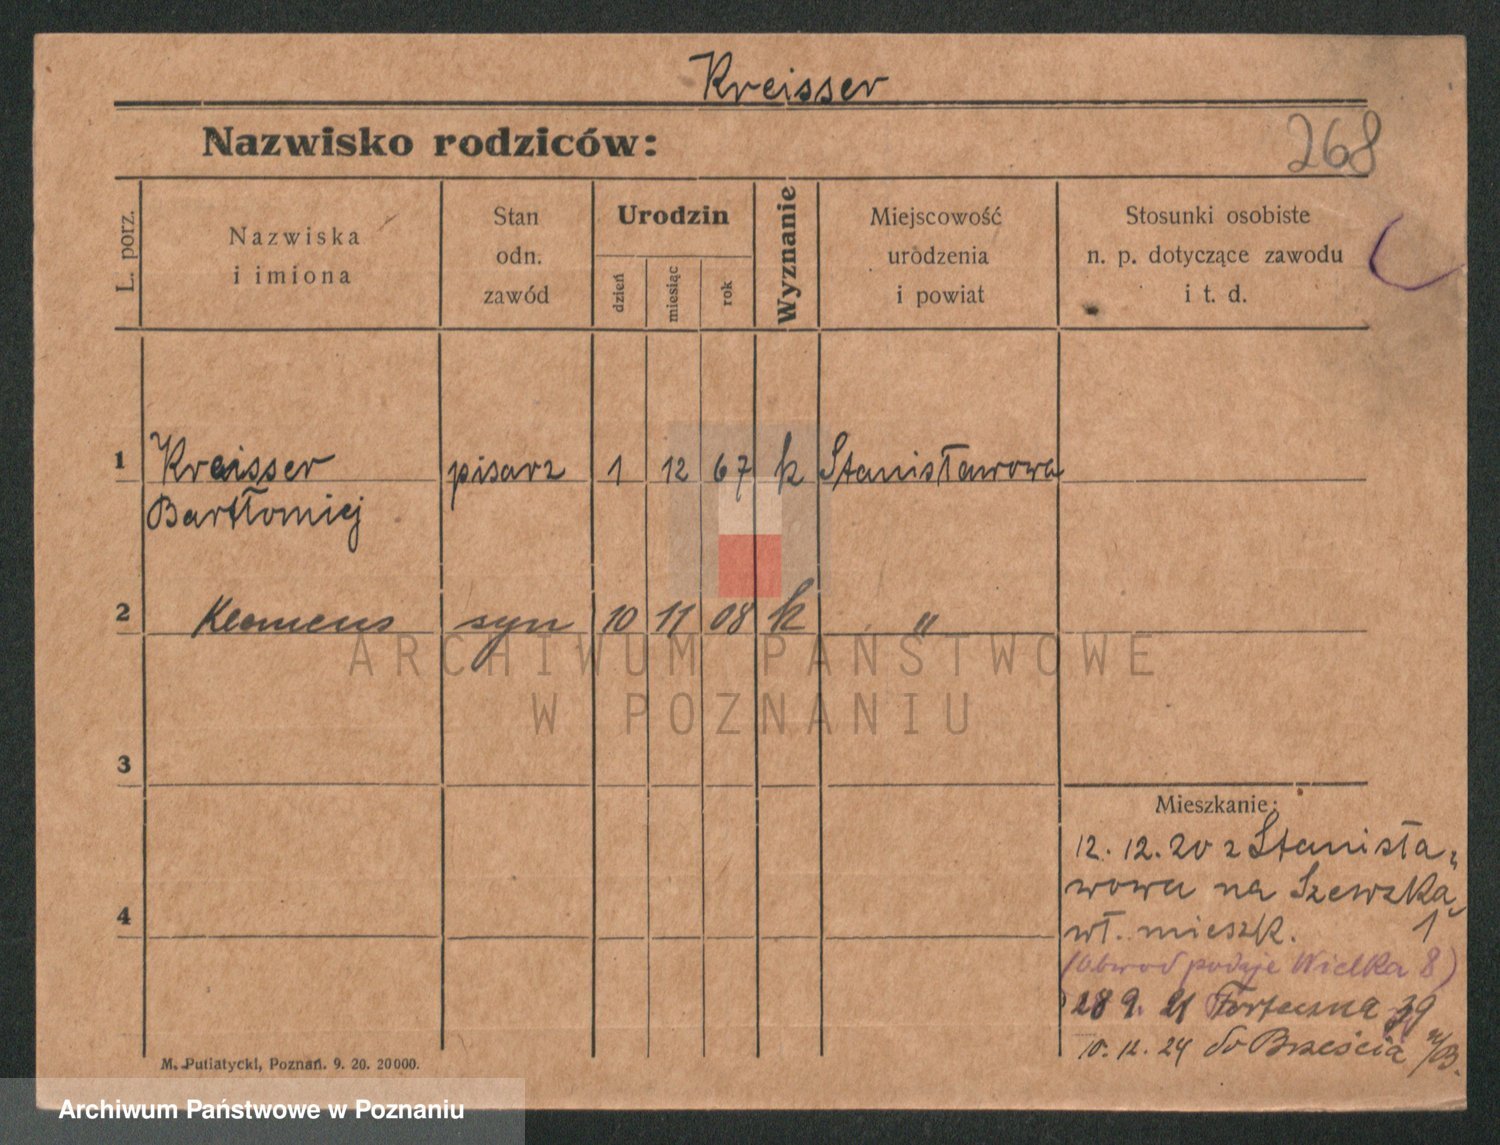 Kreisser
Nazwisko rodziców:
268
L. porz.
Nazwiska
i imiona
Stan
odn.
zawód
Urodzin
dzień
miesiąc
rok
Wyznanie
Miejscowość
urodzenia
i powiat
Stosunki osobiste
n. p. dotyczące zawodu
i t. d.
1 Kreisser pisarz 1 12 67 k Stanisławowa
Bartłomiej
2 Klemens syn 10 11 08 k "
ARCHIWUM PAŃSTWOWE
W POZNANIU
3
4
Mieszkanie:
12. 12. 20 z Stanisła-
wowa na Szewska
1
wł. mieszk.
(Obwod podaje Wielka 8)
28 9. 21 Forteczna 39
10. 12. 24 do Brześcia n/B.
M. Putiatycki, Poznań. 9. 20. 20000.
Archiwum Państwowe w Poznaniu